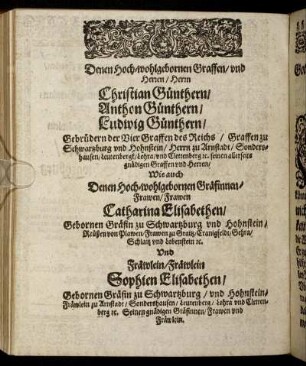 Denen Hoch-wohlgebornen Graffen/ vnd
Herren/ Herrn
Christian Günthern/
Anthon Günthern/
Ludwig Günthern/
Gebrüdern der Vier Graffen des Reichs/ Graffen zu
Schwartzburg vnd Hohnstein/ Herrn zu Arnstadt/ Sonders-
hausen/ Leutenbergk/ Lohra/ vnd Clettenberg ꝛc. seinen allerseits
gnädigen Graffen vnd Herren/
Wie auch
Denen Hoch-wohlgebornen Gräfinnen/
Frawen/ Frawen
Catharina Elisabethen/
Gebornen Gräfin zu Schwartzburg vnd Hohnstein/
Reussen von Plawen/ Frawen zu Graitz/ Cranigfeld/ Gehra/
Schlaitz vnd Lobenstein ꝛc.
Vnd
Fräwlein/ Fräwlein
Sophien Elisabethen/
Gebornen Gräfin zu Schwartzburg/ vnd Hohnstein/
Fräwlein zu Arnstadt/ Sondershausen/ Leutenberg/ Lohra vnd Cletten-
berg ꝛc. Seinen gnädigen Gräfinnen/ Frawen vnd
Fräwlein.